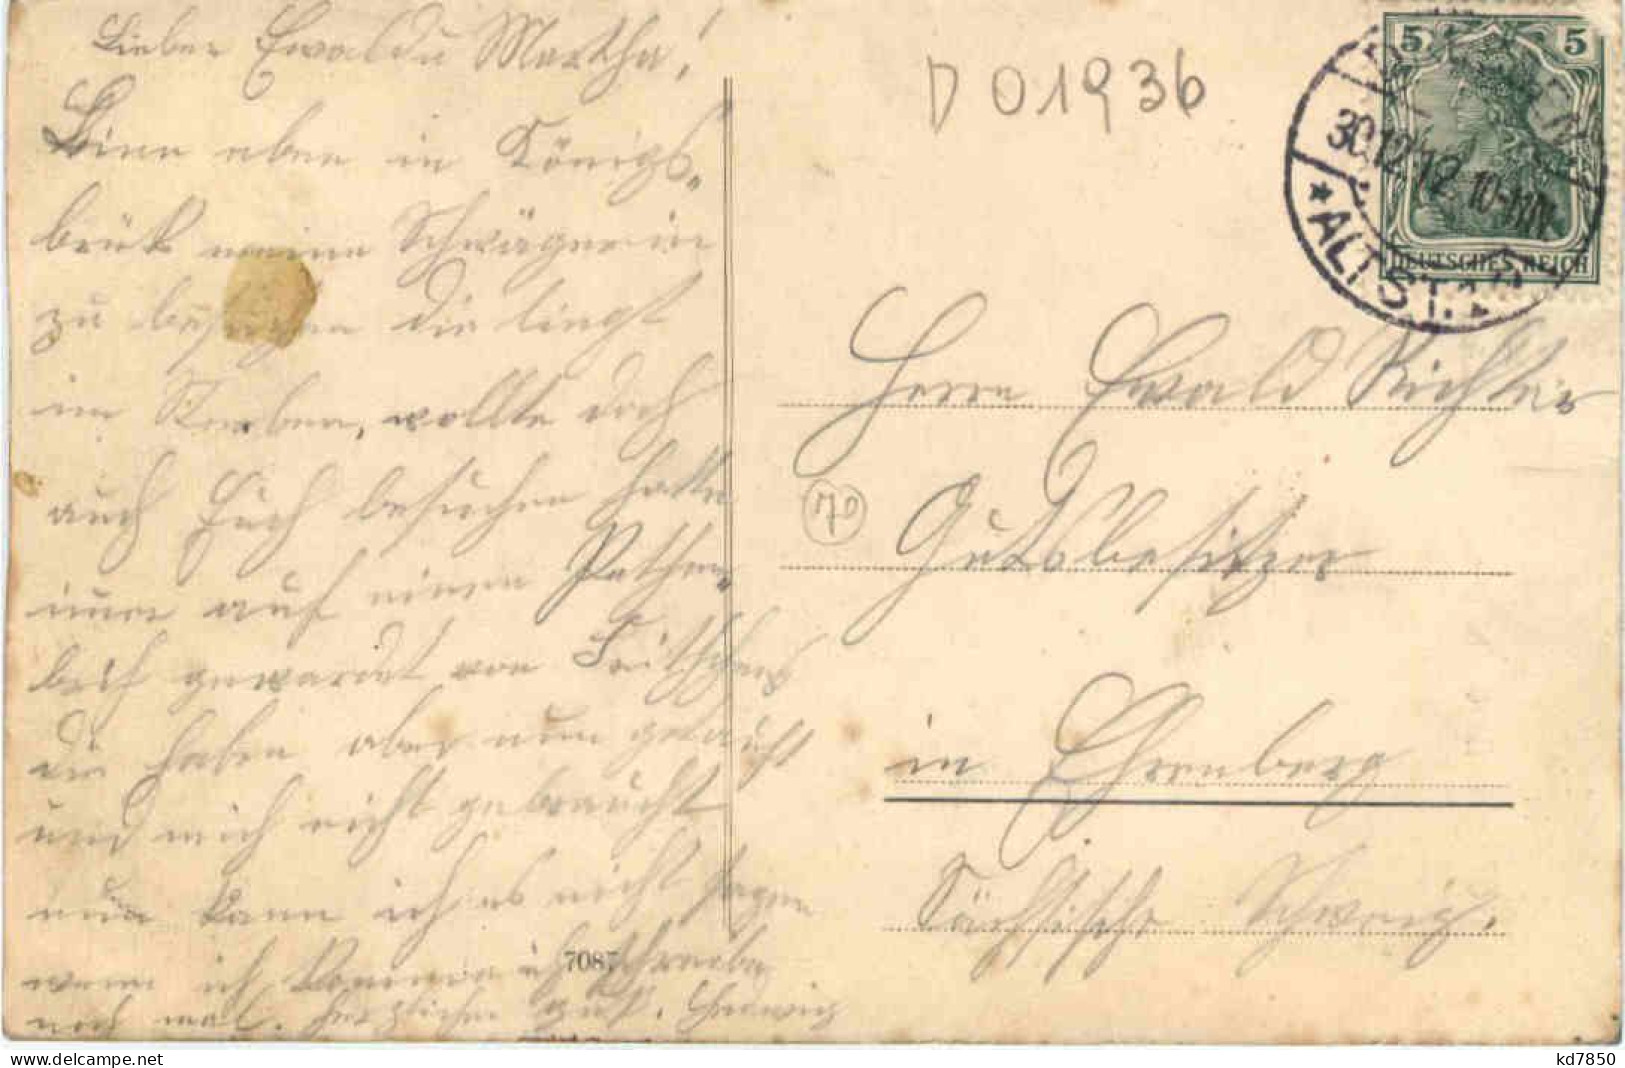 Lieber Ewald u Martha!
Binn eben in Königs-
brük meine Schwägerin
zu besuchen die liegt
im Sterben, wollte doch
auch Euch besuchen hatte
imer auf einen Pathen-
brif gewartet von
die haben aber nun getauft
und mich nicht gebraucht
nun kann ich es nicht sagen
wenn ich komme ich schreibe
noch mal. Herzlichen Gruß.
7087
D 01936
5 5
DEUTSCHES REICH
30.12.12. 10-11
* ALTST. 2
70
Herrn Ewald Richter
Gutsbesitzer
in Ehrenberg
Sächsische Schweiz.
kd7850
delcampe.net